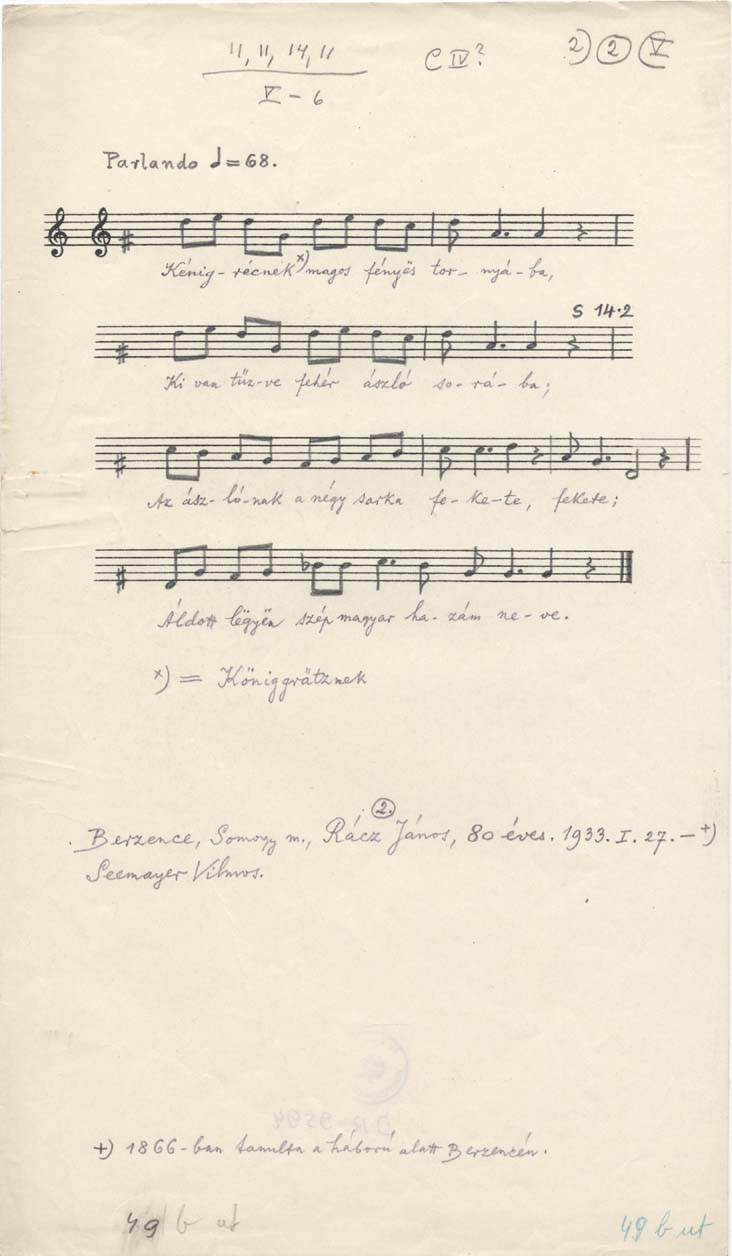 11, 11, 14, 11
V – 6
C IV?
2) 2 V
Parlando 𝅗𝅥 = 68.
Kénig-récnek x) magos fényës tor-nyá-ba,
S 14·2
Ki van tűz-ve fehér ászló so-rá-ba;
Az ász-ló-nak a négy sarka fe-ke-te, fekete;
Áldott lëgyën szép magyar ha-zám ne-ve.
x) = Königgrätznek
2.
Berzence, Somogy m., Rácz János, 80 éves. 1933. I. 27. – +)
Seemayer Vilmos.
+) 1866-ban tanulta a háború alatt Berzencén.
49 b ut
49 b ut